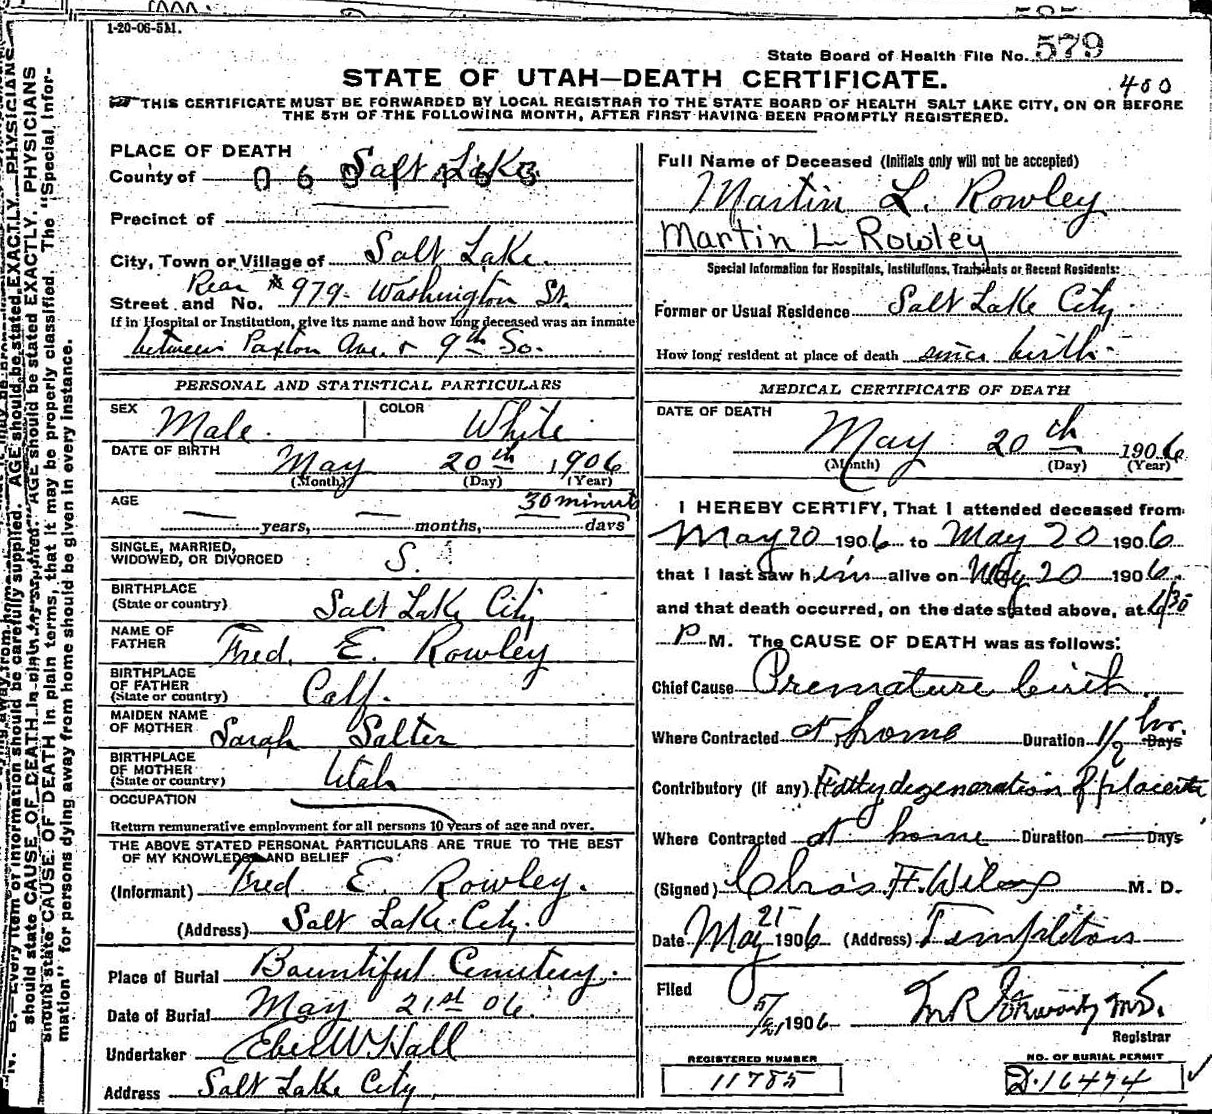 1-20-06-5M.
State Board of Health File No. 579
STATE OF UTAH—DEATH CERTIFICATE.
400
THIS CERTIFICATE MUST BE FORWARDED BY LOCAL REGISTRAR TO THE STATE BOARD OF HEALTH SALT LAKE CITY, ON OR BEFORE
THE 5TH OF THE FOLLOWING MONTH, AFTER FIRST HAVING BEEN PROMPTLY REGISTERED.
PLACE OF DEATH
County of Salt Lake
Precinct of
City, Town or Village of Salt Lake.
Rear
Street and No. #979 Washington St.
If in Hospital or Institution, give its name and how long deceased was an inmate
between Paxton Ave. & 9th So.
PERSONAL AND STATISTICAL PARTICULARS
SEX Male. COLOR White
DATE OF BIRTH May 20th, 1906
(Month) (Day) (Year)
AGE — years, — months, 30 minuts days
SINGLE, MARRIED,
WIDOWED, OR DIVORCED S.
BIRTHPLACE
(State or country) Salt Lake City
NAME OF
FATHER Fred. E. Rowley
BIRTHPLACE
OF FATHER
(State or country) Calf.
MAIDEN NAME
OF MOTHER Sarah Salter
BIRTHPLACE
OF MOTHER
(State or country) Utah
OCCUPATION
Return remunerative employment for all persons 10 years of age and over.
THE ABOVE STATED PERSONAL PARTICULARS ARE TRUE TO THE BEST
OF MY KNOWLEDGE AND BELIEF
(Informant) Fred E. Rowley.
(Address) Salt Lake City.
Place of Burial Bountiful Cemetery.
Date of Burial May 21st 06.
Undertaker Eber W Hall
Address Salt Lake City.
Full Name of Deceased (Initials only will not be accepted)
Martin L. Rowley
Martin L Rowley
Special Information for Hospitals, Institutions, Transients or Recent Residents:
Former or Usual Residence Salt Lake City
How long resident at place of death since birth.
MEDICAL CERTIFICATE OF DEATH
DATE OF DEATH
May 20th 1906
(Month) (Day) (Year)
I HEREBY CERTIFY, That I attended deceased from
May 20 1906 to May 20 1906
that I last saw him alive on May 20 1906
and that death occurred, on the date stated above, at 1:30
P M. The CAUSE OF DEATH was as follows:
Chief Cause Premature birth.
Where Contracted at home Duration 1/2 hr. Days
Contributory (if any) Fatty degeneration of placenta
Where Contracted at home Duration — Days
(Signed) Chas. F. Wilcox M. D.
Date May 21 1906 (Address) Templeton
Filed
5/21 1906
Registrar
REGISTERED NUMBER
11785
NO. OF BURIAL PERMIT
D-16474
should state CAUSE OF DEATH in plain terms, that it may be properly classified. The "Special Infor-
mation" for persons dying away from home should be given in every instance.